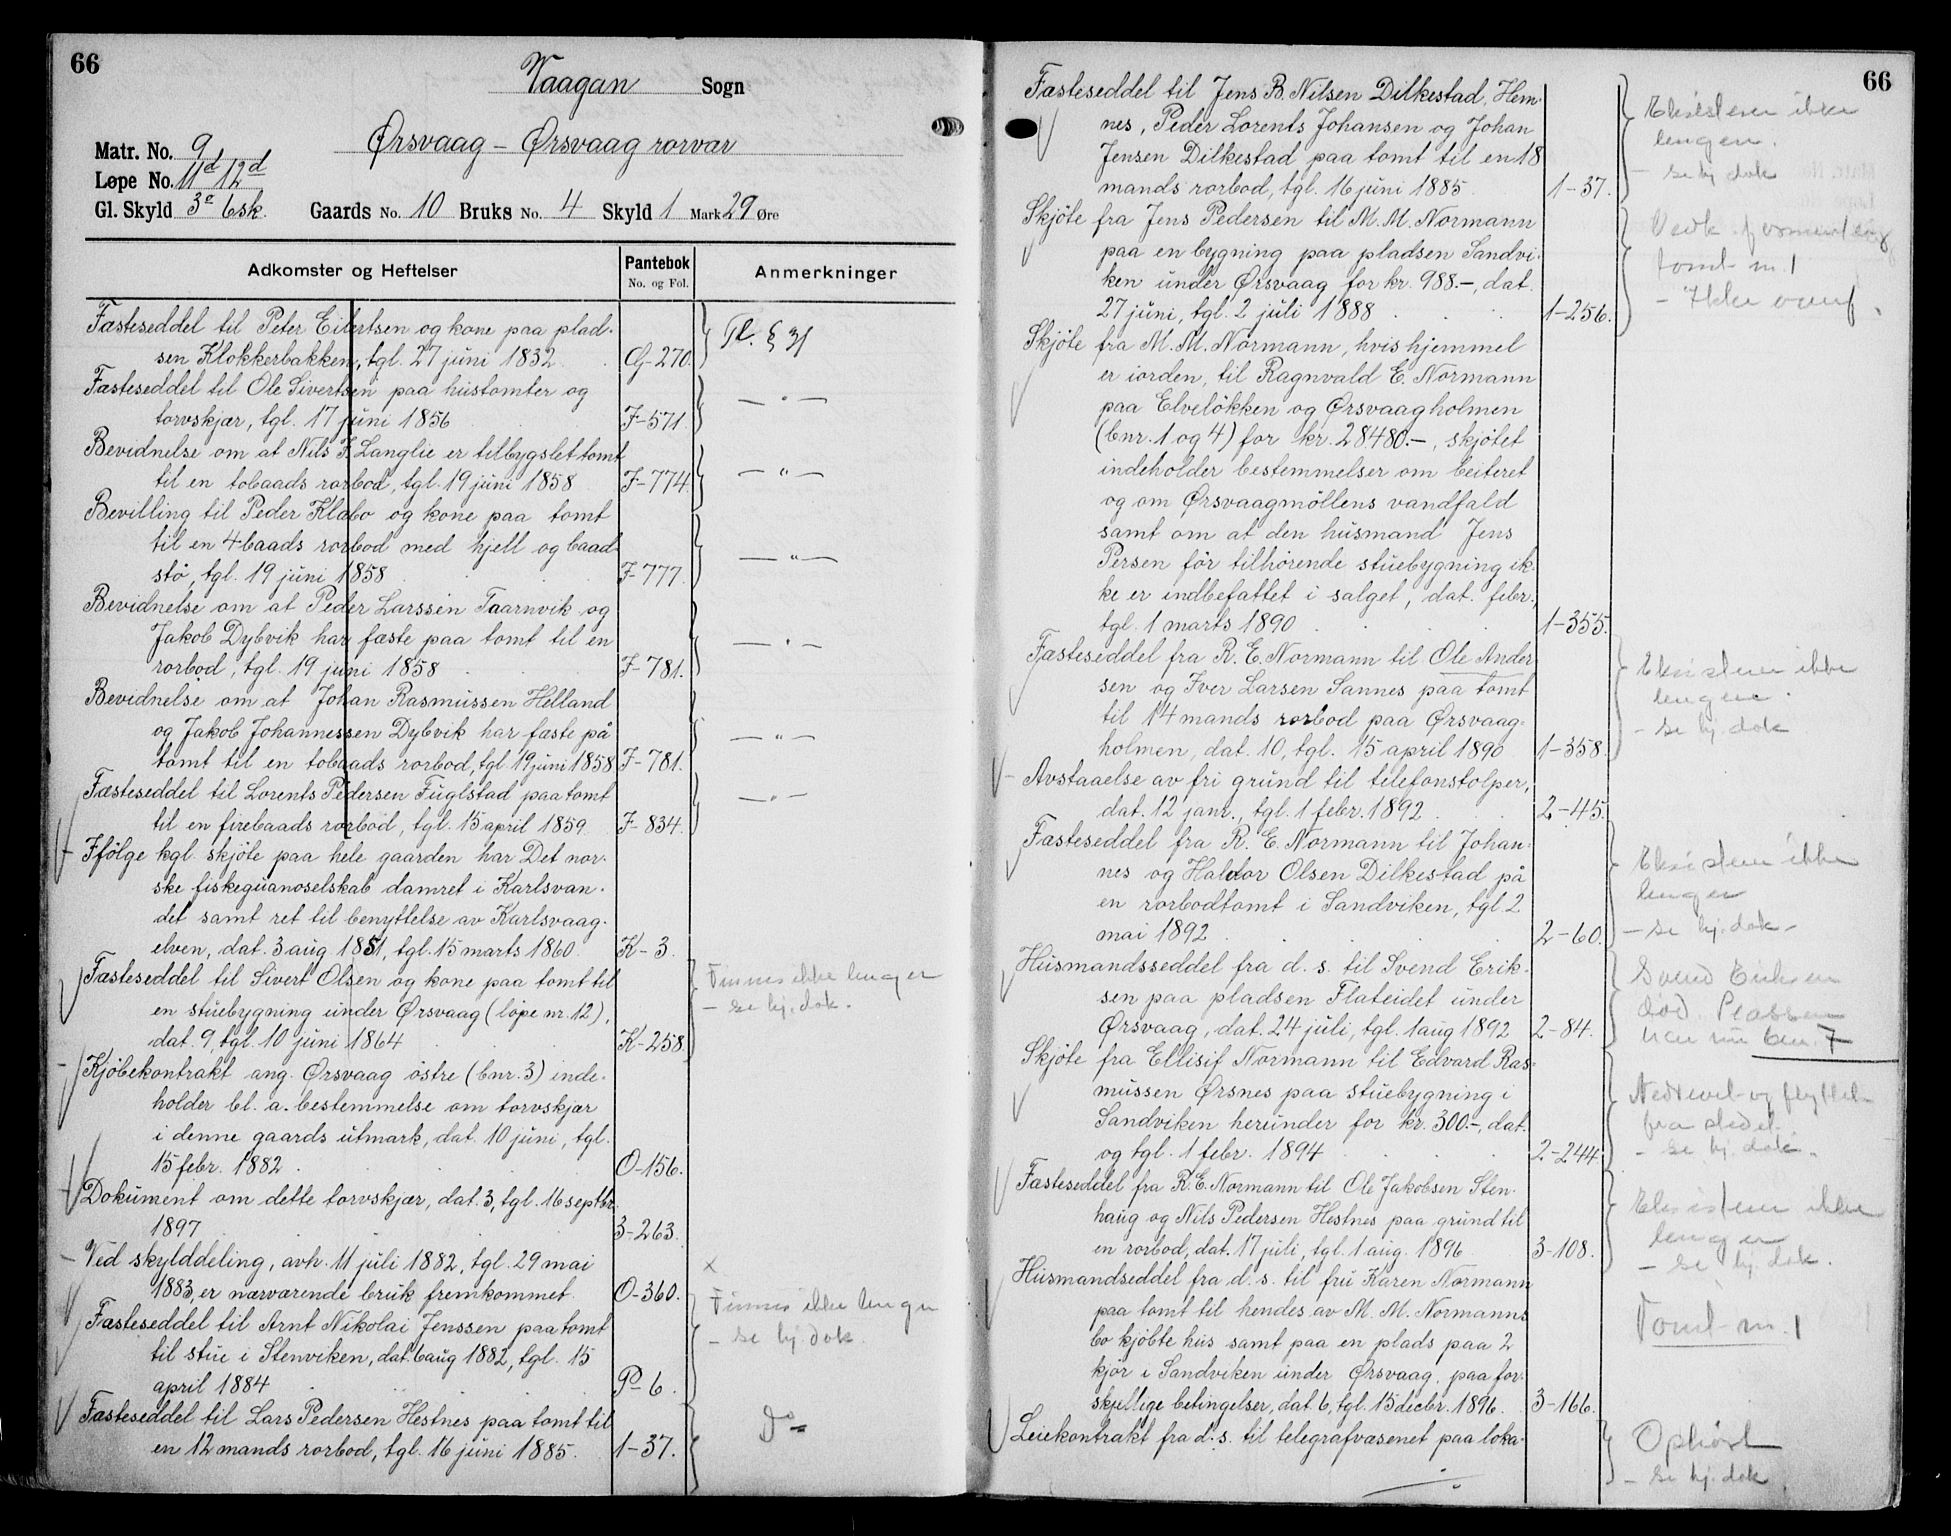 66
Vaagan Sogn
Matr. No. 9
Ørsvaag – Ørsvaag rorvær
Løpe No. 11d 12d
Gl. Skyld 3c 6sk. Gaards No. 10 Bruks No. 4 Skyld 1 Mark 29 Øre
Adkomster og Heftelser
Pantebok
No. og Fol.
Anmerkninger
Fæsteseddel til Peter Eilertsen og kone paa plad-
sen Klokkerbakken, tgl. 27 juni 1832. G-270. Tl. § 31
Fæsteseddel til Ole Sivertsen paa hustomter og
torvskjær, tgl. 17 juni 1856 F-571. — " —
Bevidnelse om at Nils F. Langlie er tilbygslet tomt
til en tobaads rorbod, tgl. 19 juni 1858 F-774. — " —
Bevilling til Peder Klæbo og kone paa tomt
til en 4 baads rorbod med hjell og baad-
stø, tgl. 19 juni 1858 F-777. — " —
Bevidnelse om at Peder Larssen Taarnvik og
Jakob Dybvik har fæste paa tomt til en
rorbod, tgl. 19 juni 1858 F-781. — " —
Bevidnelse om at Johan Rasmussen Helland
og Jakob Johannessen Dybvik har fæste på
tomt til en tobaads rorbod, tgl 19 juni 1858 F-781. — " —
Fæsteseddel til Lorents Pedersen Fuglstad paa tomt
til en firebaads rorbod, tgl. 15 april 1859 F-834. — " —
Ifølge kgl. skjøte paa hele gaarden har Det nor-
ske fiskeguanoselskab damret i Karlsvan-
det samt ret til benyttelse av Karlsvaag-
elven, dat. 3 aug 1851, tgl. 15 marts 1860 K-3.
Fæsteseddel til Sivert Olsen og kone paa tomt til Finnes ikke lenger
en stuebygning under Ørsvaag (løpe nr. 12), – se hj. dok.
dat. 9, tgl. 10 juni 1864 K-258.
Kjøbekontrakt ang. Ørsvaag østre (bnr. 3) inde-
holder bl. a. bestemmelse om torvskjær
i denne gaards utmark, dat. 10 juni, tgl.
15 febr. 1882. O-156.
Dokument om dette torvskjær, dat. 3, tgl. 16 septbr.
1897 3-263.
Ved skylddeling, avh. 11 juli 1882, tgl. 29 mai x
1883, er nærværende bruk fremkommet. O-360.
Fæsteseddel til Arnt Nikolai Jenssen paa tomt Finnes ikke lenger
til stue i Stenviken, dat. 6 aug 1882, tgl. 15 – se hj. dok.
april 1884 P-6.
Fæsteseddel til Lars Pedersen Hestnes paa tomt til
en 12 mands rorbod, tgl. 16 juni 1885. 1-37. Do
66
Fæsteseddel til Jens B. Nilsen Dilkestad, Hem- Eksisterer ikke
nes, Peder Lorents Johansen og Johan lenger.
Jensen Dilkestad paa tomt til en 18 – se hj. dok
mands rorbod, tgl. 16 juni 1885 1-37.
Skjøte fra Jens Pedersen til M. M. Normann Vedk.
paa en bygning paa pladsen Sandvi- tomt nr. 1
ken under Ørsvaag for kr. 988.–, dat. – Ikke overf.
27 juni, tgl. 2 juli 1888 1-256.
Skjøte fra M. M. Normann, hvis hjemmel
er iorden, til Ragnvald E. Normann
paa Elveløkken og Ørsvaagholmen
(bnr. 1 og 4) for kr. 28480.–, skjøtet
indeholder bestemmelser om beiteret
og om Ørsvaagmøllens vandfald
samt om at den husmand Jens
Persen før tilhørende stuebygning ik-
ke er indbefattet i salget, dat. febr.,
tgl. 1 marts 1890 1-355.
Fæsteseddel fra R. E. Normann til Ole Ander- Eksisterer ikke
sen og Iver Larsen Sannes paa tomt lenger.
til 14 mands rorbod paa Ørsvaag- – se hj. dok
holmen, dat. 10, tgl. 15 april 1890 1-358.
Avstaaelse av fri grund til telefonstolper,
dat. 12 janr., tgl. 1 febr. 1892 2-45.
Fæsteseddel fra R. E. Normann til Johan- Eksisterer ikke
nes og Haldor Olsen Dilkestad på lenger
en rorbodtomt i Sandviken, tgl. 2 – se hj. dok.
mai 1892 2-60.
Husmandsseddel fra d. s. til Svend Erik- Svend Eriksen
sen paa pladsen Flateidet under død. Plassen
Ørsvaag, dat. 24 juli, tgl. 1 aug 1892 2-84. har nu bnr. 7
Skjøte fra Ellisif Normann til Edvard Ras- Nedrevet og flyttet
mussen Ørsnes paa stuebygning i fra stedet.
Sandviken herunder for kr. 300.–, dat. – se hj. dok.
og tgl. 1 febr. 1894 2-244.
Fæsteseddel fra R. E. Normann til Ole Jakobsen Sten- Eksisterer ikke
haug og Nils Pedersen Hestnes paa grund til lenger
en rorbod, dat. 17 juli, tgl. 1 aug. 1896 3-108. – se hj. dok.
Husmandseddel fra d. s. til fru Karen Normann
paa tomt til hendes av M. M. Normanns Tomt nr. 1
bo kjøbte hus samt paa en plads paa 2
kjør i Sandviken under Ørsvaag, paa for-
skjellige betingelser, dat. 6, tgl. 15 decbr. 1896. 3-166.
Leiekontrakt fra d. s. til telegrafvæsenet paa loka- Ophørt
– se hj. dok.